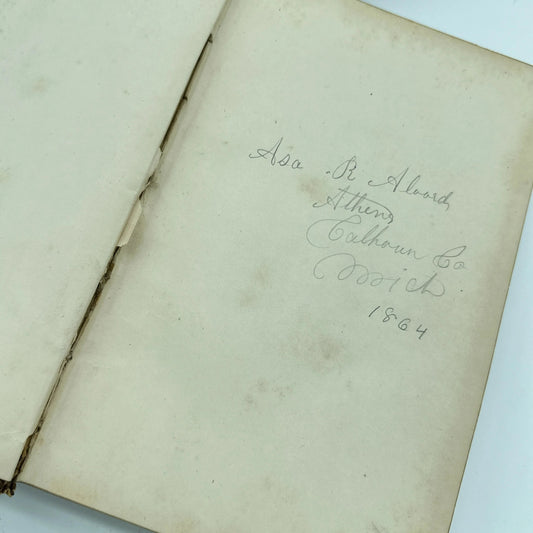 Asa R Alvord
Athens
Calhoun Co
Mich
1864